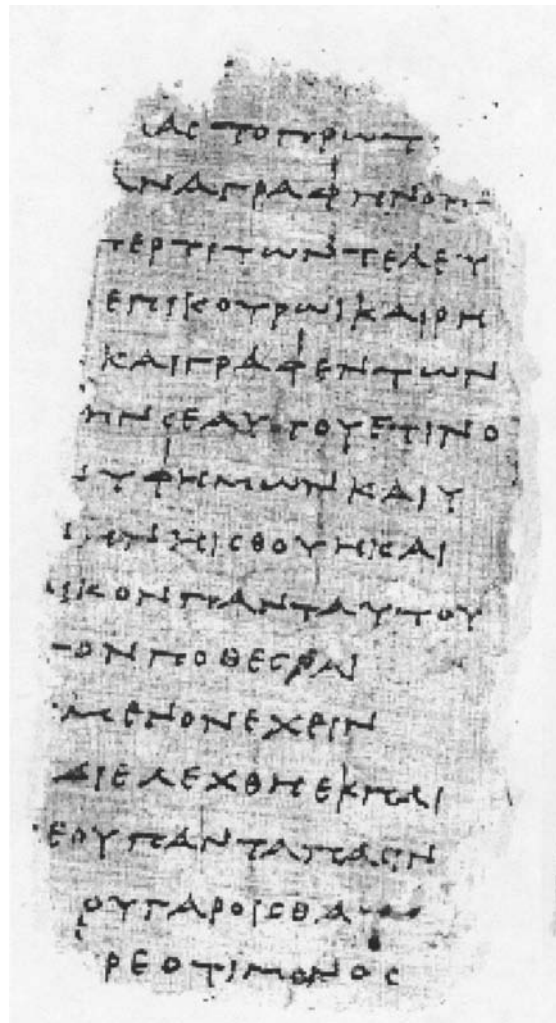 ΑΣ ΤΟ ΠΡΩΤ
ΝΑΓΡΑΦΗΝΟΠ
ΤΕΡΤΡΙΤΩΝΤΕΛΕΥ
ΕΠΙΚΟΥΡΩΙΚΑΙΡΗ
ΚΑΙΓΡΑΦΕΝΤΩΝ
ΗΝΣΕΑΥΤΟΥΕΤΙΝΟ
ΥΦΗΜΩΝΚΑΙΥ
ΝΗΙΣΘΟΥΗΚΑΙ
ΙΚΟΝΠΑΝΤΑΥΤΟΥ
ΤΟΝΠΟΘΕΣΡΑΙ
ΜΕΝΟΝΕΧΡΙΝ
ΔΙΕΛΕΧΘΗΕΚΠΑΙ
ΕΟΥΠΑΝΤΑΠΑΣΙΝ
ΟΥΓΑΡΟΙΣΘΑ
ΡΕΟΤΙΜΟΝΟΣ